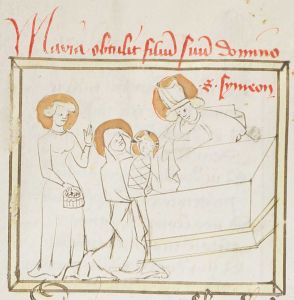 Maria obtulit filiu suu domino
S. symeon